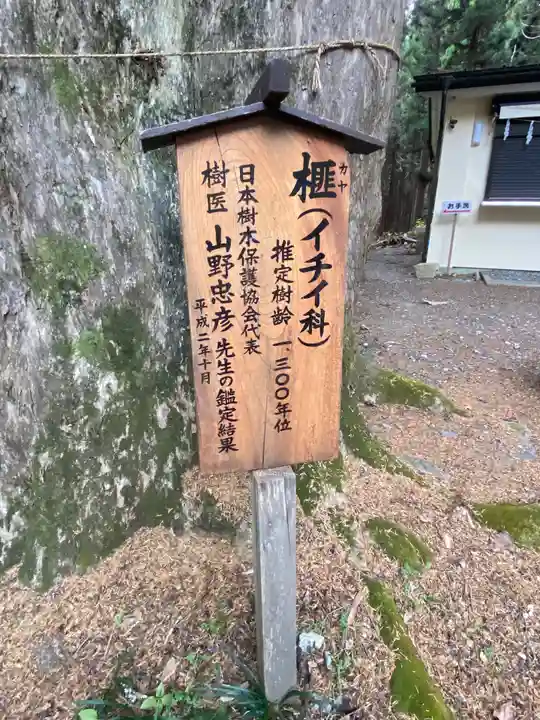 榧(イチイ科)
カヤ
推定樹齢 一、三〇〇年位
日本樹木保護協会代表
樹医 山野忠彦先生の鑑定結果
平成二年十月
お手洗